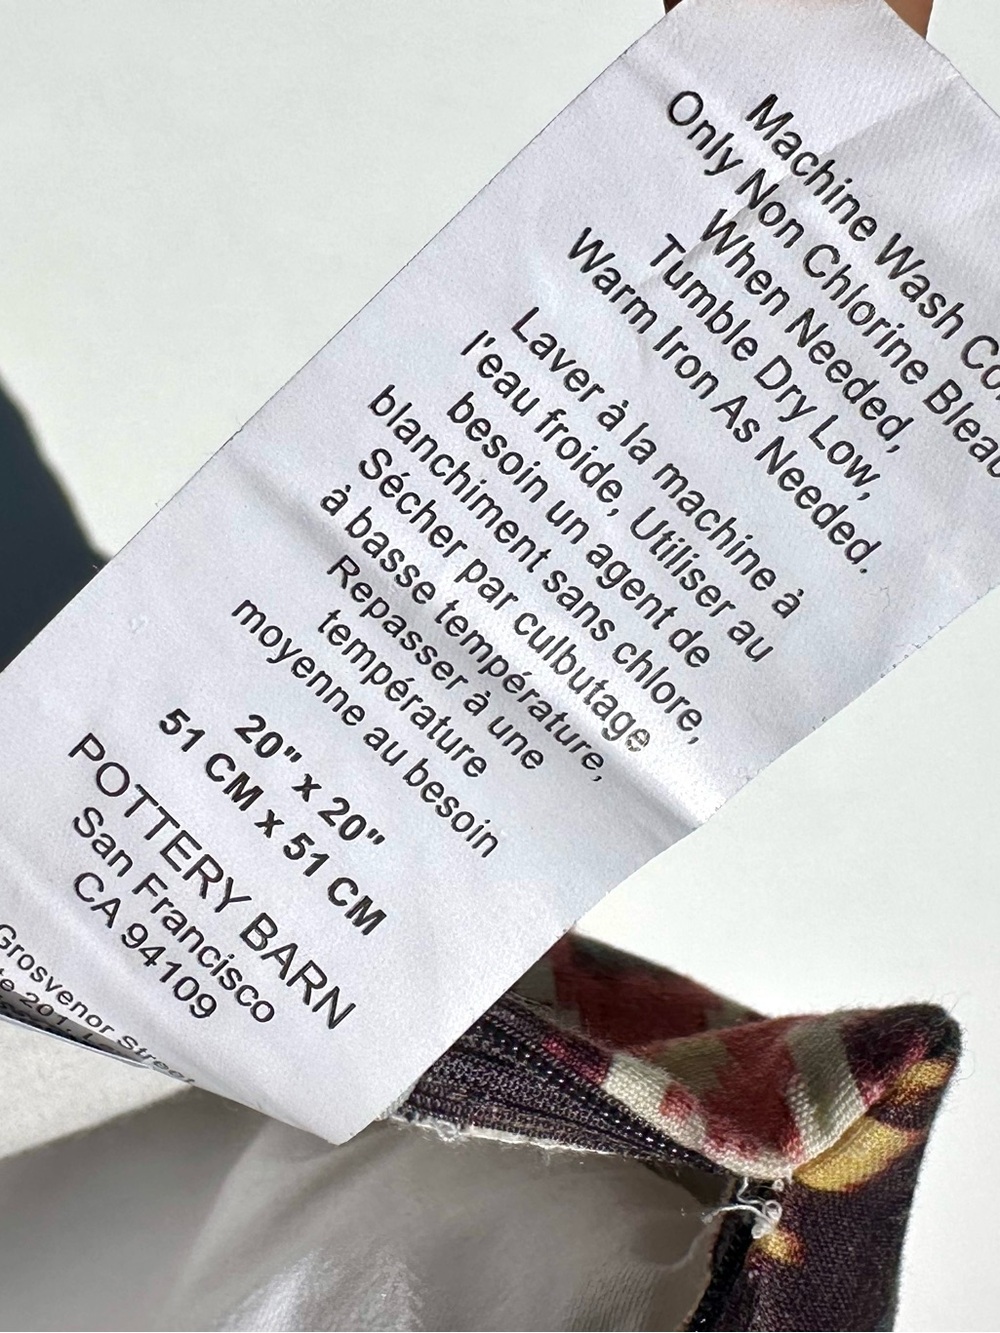 Machine Wash Co
Only Non Chlorine Bleac
When Needed,
Tumble Dry Low,
Warm Iron As Needed.
Laver à la machine à
l'eau froide, Utiliser au
besoin un agent de
blanchiment sans chlore,
Sécher par culbutage
à basse température,
Repasser à une
température
moyenne au besoin
20" x 20"
51 CM x 51 CM
POTTERY BARN
San Francisco
CA 94109
Grosvenor Street
te 201